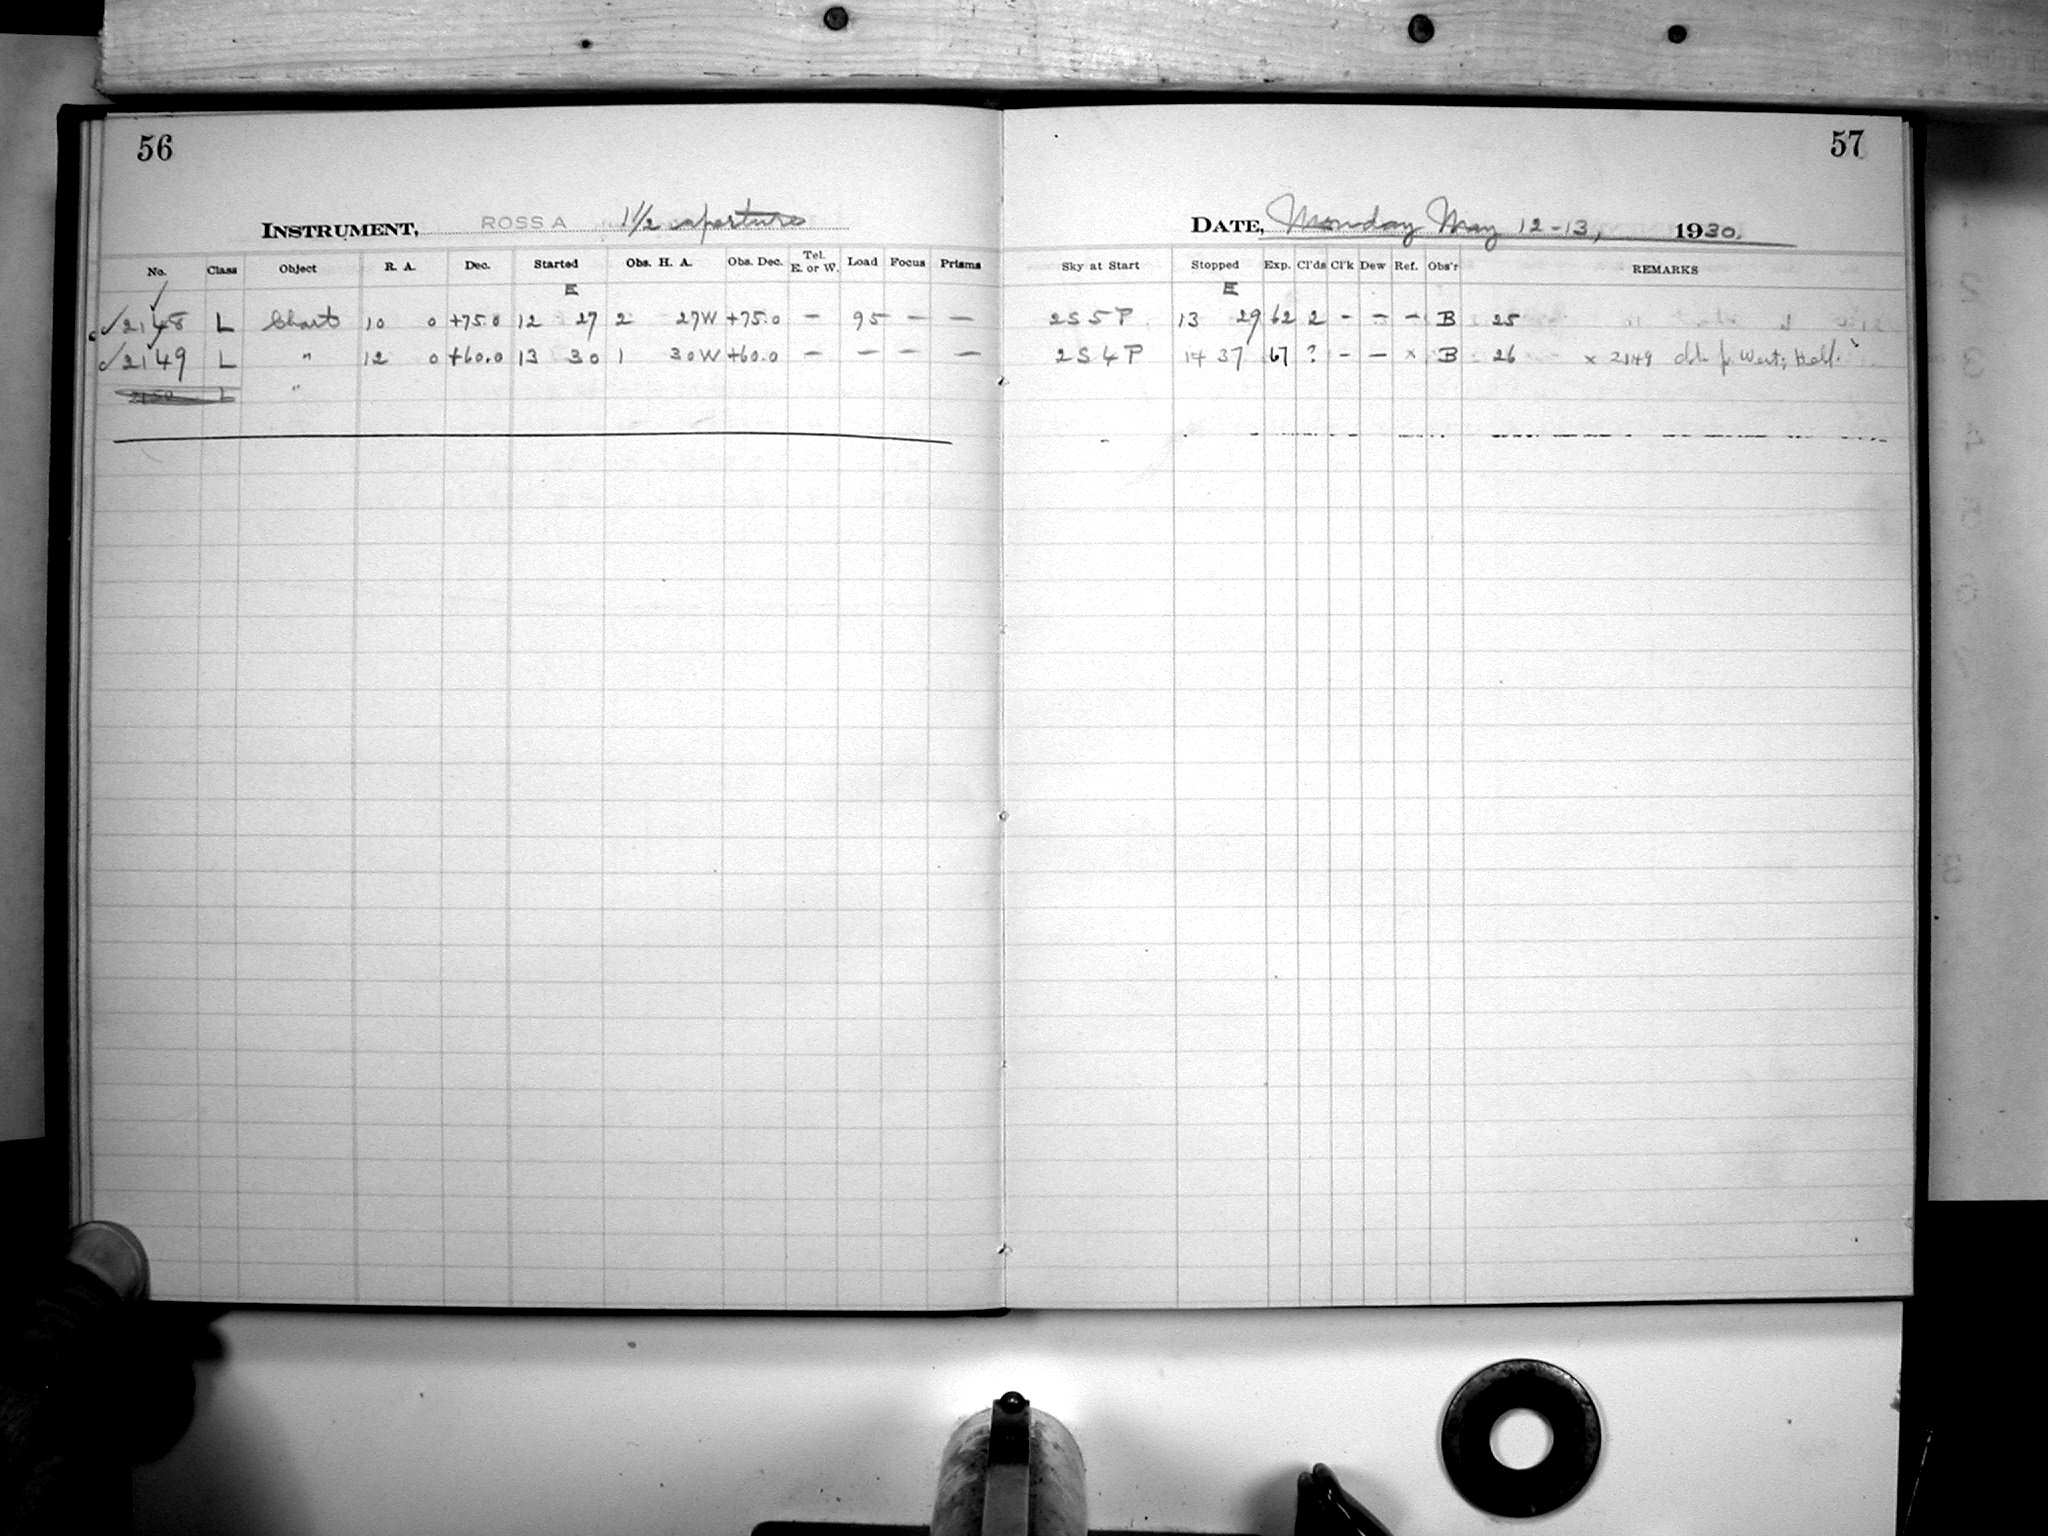 56
INSTRUMENT, ROSS A 1 1/2 aperture
No. Class Object R. A. Dec. Started Obs. H. A. Obs. Dec. Tel. E. or W. Load Focus Prisms
E
✓2148 L Chart 10 0 +75.0 12 27 2 27W +75.0 – 95 – –
✓2149 L " 12 0 +60.0 13 30 1 30W +60.0 – – – –
2150 L "
57
DATE, Monday May 12-13, 1930.
Sky at Start Stopped Exp. Cl'ds Cl'k Dew Ref. Obs'r REMARKS
E
2 S 5 P 13 29 62 2 – – – B 25
2 S 4 P 14 37 67 ? – – x B 26 x 2149